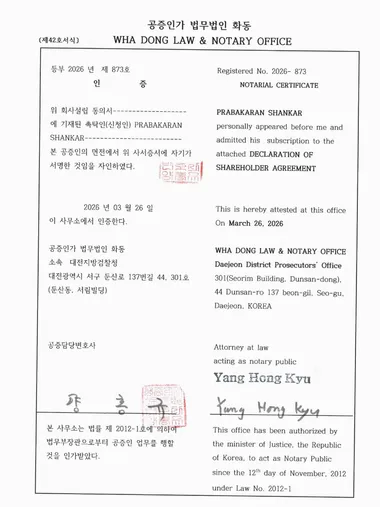 공증인가 법무법인 화동
(제42호서식) WHA DONG LAW & NOTARY OFFICE
등부 2026 년 제 873호
인 증
위 회사설립 동의서--------------------
에 기재된 촉탁인(신청인) PRABAKARAN
SHANKAR--------------------------
본 공증인의 면전에서 위 사서증서에 자기가
서명한 것임을 자인하였다.
2026 년 03 월 26 일
이 사무소에서 인증한다.
공증인가 법무법인 화동
소속 대전지방검찰청
대전광역시 서구 둔산로 137번길 44, 301호
(둔산동, 서림빌딩)
공증담당변호사
양 홍 규
본 사무소는 법률 제 2012-1호에 의하여
법무부장관으로부터 공증인 업무를 행할
것을 인가받았다.
Registered No. 2026- 873
NOTARIAL CERTIFICATE
PRABAKARAN SHANKAR
personally appeared before me and
admitted his subscription to the
attached DECLARATION OF
SHAREHOLDER AGREEMENT
This is hereby attested at this office
On March 26, 2026
WHA DONG LAW & NOTARY OFFICE
Daejeon District Prosecutors' Office
301(Seorim Building, Dunsan-dong),
44 Dunsan-ro 137 beon-gil, Seo-gu,
Daejeon, KOREA
Attorney at law
acting as notary public
Yang Hong Kyu
Yang Hong Kyu
This office has been authorized by
the minister of Justice, the Republic
of Korea, to act as Notary Public
since the 12th day of November, 2012
under Law No. 2012-1